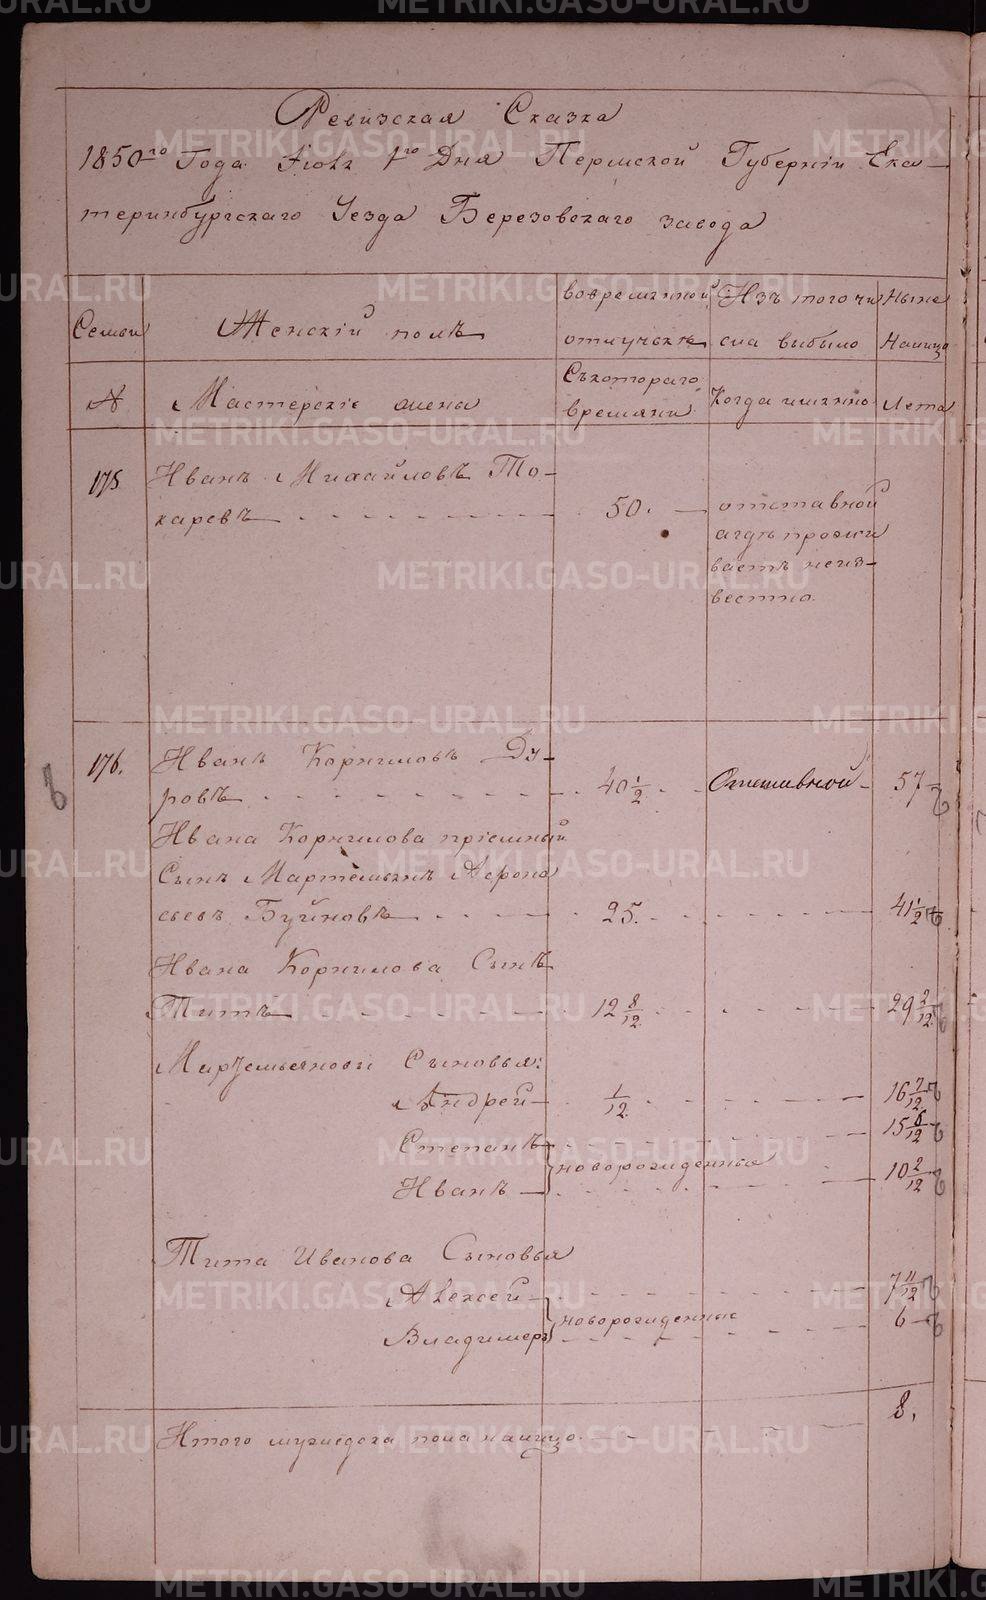 Ревизская Сказка
1850го Года Июля 1го Дня Пермской Губерніи Ека-
теринбургскаго Уезда Березовскаго завода
Семьи
Женскій полъ
вовременной
отлучьке
Изъ того чи
сла выбыло
Ныне
Налицо
№
Мастерскіе имена
Съкотораго
времяни
Когда имянно
Лета
175
Иванъ Михайловъ То-
каревъ
50.
отставной
агдѣ прожи
ваетъ неиз-
вестно.
176.
Иванъ Корниловъ Ду-
ровъ
40 1/2
Отставной
57
Ивана Корнилова пріемный
Сынъ Мартемьянъ Афона
сьевъ Буйновъ
25.
41 1/2
Ивана Корнилова Сынъ
Титъ
12 8/12
29 2/12
Мартемьяновы Сыновья:
Андрей
1/12
16 7/12
Степанъ
15 6/12
новорожденныя
Иванъ
10 2/12
Тита Иванова Сыновья
Алексей
7 11/12
новорожденные
Владимеръ
6
8.
Итого мужеска пола налицо
METRIKI.GASO-URAL.RU